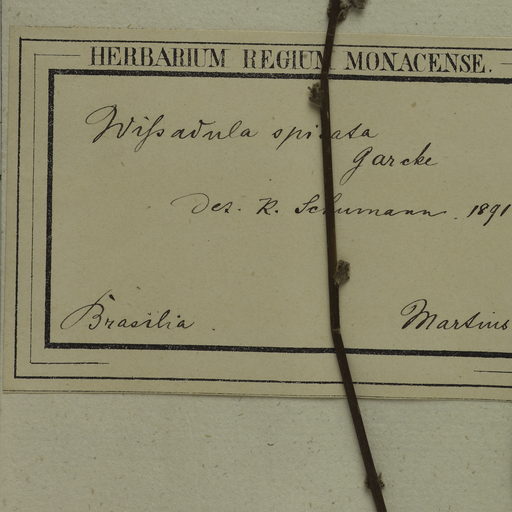 HERBARIUM REGIUM MONACENSE.
Wißadula spicata
Garcke
Det. K. Schumann. 1891
Brasilia.
Martius